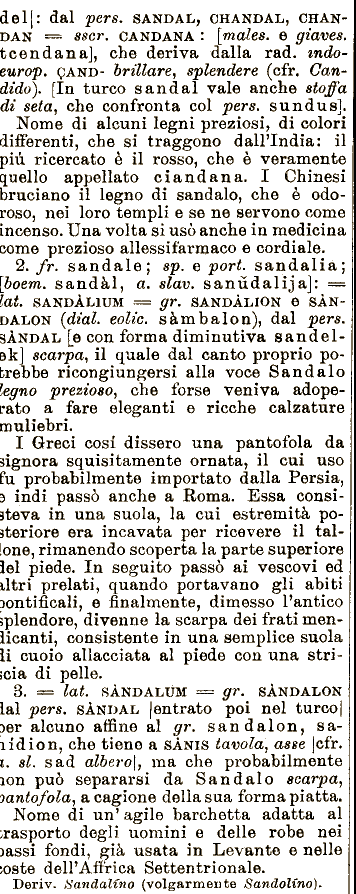 del]: dal pers. SANDAL, CHANDAL, CHAN-
DAN = sscr. CANDANA: [males. e giaves.
tcendana], che deriva dalla rad. indo-
europ. ÇAND- brillare, splendere (cfr. Can-
dido). [In turco sandal vale anche stoffa
di seta, che confronta col pers. sundus].
Nome di alcuni legni preziosi, di colori
differenti, che si traggono dall'India: il
più ricercato è il rosso, che è veramente
quello appellato ciandana. I Chinesi
bruciano il legno di sandalo, che è odo-
roso, nei loro templi e se ne servono come
incenso. Una volta si usò anche in medicina
come prezioso allessifarmaco e cordiale.
2. fr. sandale; sp. e port. sandalia;
[boem. sandàl, a. slav. sanŭdalija]: =
lat. SANDÀLIUM = gr. SANDÀLION e SÀN-
DALON (dial. eolic. sàmbalon), dal pers.
SÀNDAL [e con forma diminutiva sandel-
ek] scarpa, il quale dal canto proprio po-
trebbe ricongiungersi alla voce Sandalo
legno prezioso, che forse veniva adope-
rato a fare eleganti e ricche calzature
muliebri.
I Greci cosí dissero una pantofola da
signora squisitamente ornata, il cui uso
fu probabilmente importato dalla Persia,
e indi passò anche a Roma. Essa consi-
steva in una suola, la cui estremità po-
steriore era incavata per ricevere il tal-
lone, rimanendo scoperta la parte superiore
del piede. In seguito passò ai vescovi ed
altri prelati, quando portavano gli abiti
pontificali, e finalmente, dimesso l'antico
splendore, divenne la scarpa dei frati men-
dicanti, consistente in una semplice suola
di cuoio allacciata al piede con una stri-
scia di pelle.
3. = lat. SÀNDALUM = gr. SÀNDALON
dal pers. SÀNDAL [entrato poi nel turco]
per alcuno affine al gr. sandalon, sa-
nidion, che tiene a SÀNIS tavola, asse [cfr.
a. sl. sad albero], ma che probabilmente
non può separarsi da Sandalo scarpa,
pantofola, a cagione della sua forma piatta.
Nome di un' agile barchetta adatta al
trasporto degli uomini e delle robe nei
bassi fondi, già usata in Levante e nelle
coste dell'Affrica Settentrionale.
Deriv. Sandalíno (volgarmente Sandolíno).